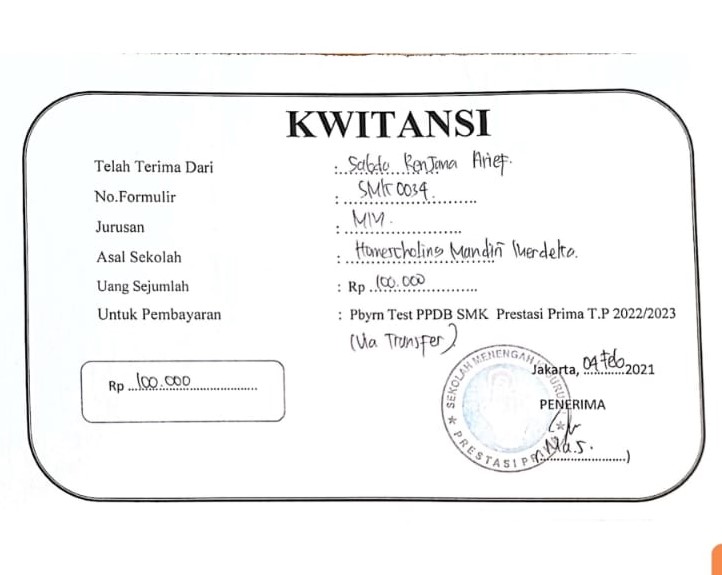 KWITANSI
Telah Terima Dari : Sabda Renjana Arief.
No.Formulir : SMK 0034.
Jurusan : MM.
Asal Sekolah : Homescholing Mandiri Merdeka.
Uang Sejumlah : Rp 100.000
Untuk Pembayaran : Pbyrn Test PPDB SMK Prestasi Prima T.P 2022/2023
(Via Transfer)
Rp 100.000
SEKOLAH MENENGAH
PRESTASI
Jakarta, 04 Feb 2021
PENERIMA